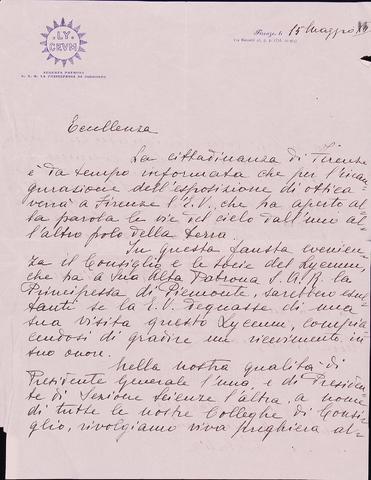 LY
CEVM
AUGUSTA PATRONA
S. A. R. LA PRINCIPESSA DI PIEMONTE
Firenze, li 15 Maggio
Eccellenza
La cittadinanza di Firenze
è da tempo informata che per l'inau-
gurazione dell'esposizione di ottica
verrà a Firenze l'E.V. che ha aperto al-
la parola le vie del cielo dall'uno al-
l'altro polo della terra.
In questa fausta evenien-
za il Consiglio e le socie del Lyceum,
che ha a sua Alta Patrona S.A.R. la
Principessa di Piemonte, sarebbero esul-
tanti se la E.V. degnasse di una
sua visita questo Lyceum, compia-
cendosi di gradire un ricevimento in
suo onore.
Nella nostra qualità di
Presidente Generale l'una, e di Presiden-
te di Sezione Scienze l'altra, a nome
di tutte le nostre Colleghe di Consi-
glio, rivolgiamo viva preghiera al-